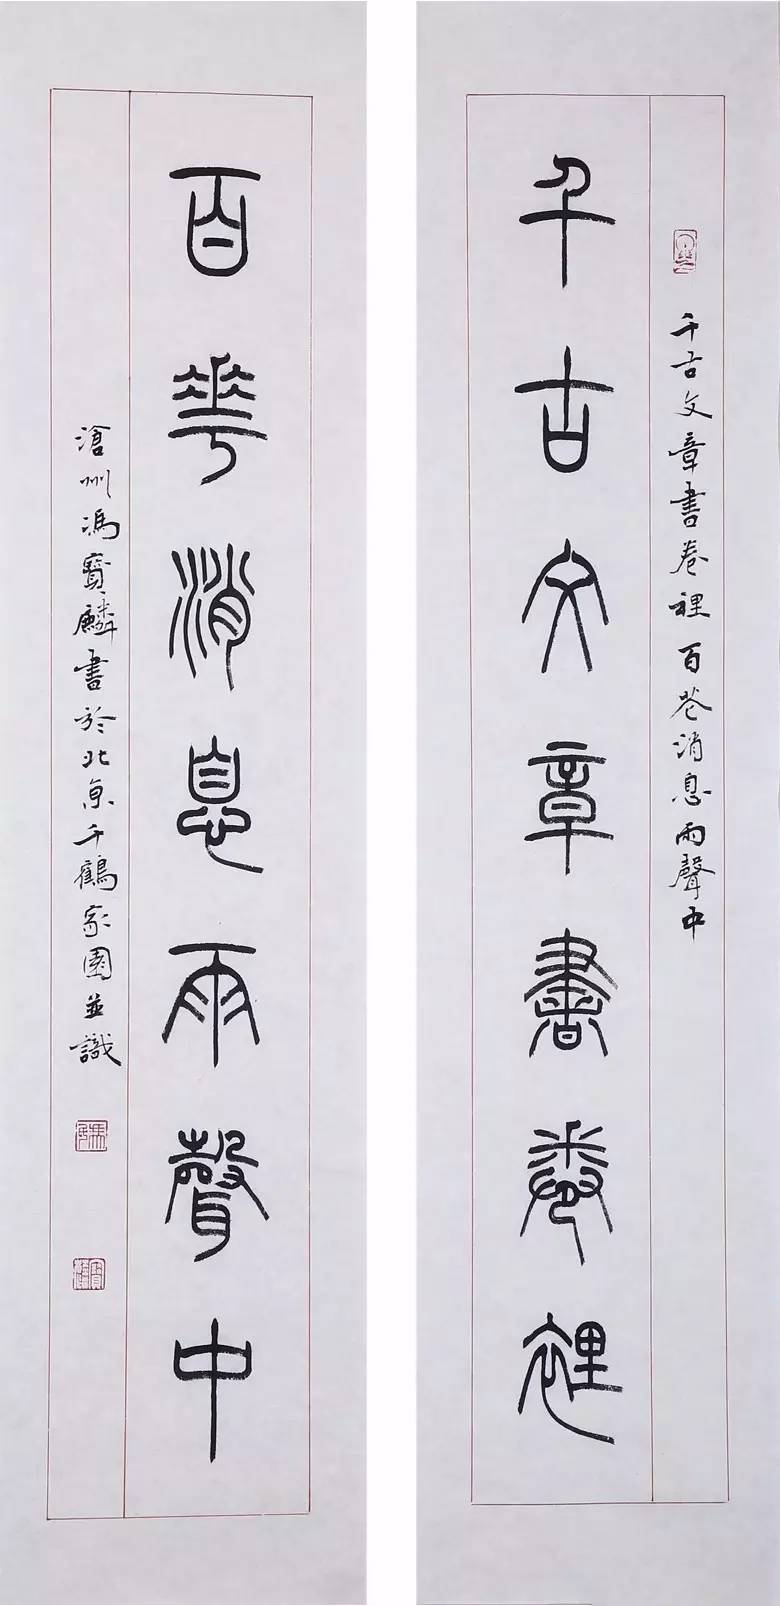 千古文章書卷裡百花消息雨聲中
千古文章書卷裡
百華消息雨聲中
滄州馮寶麟書於北京千鶴家園並識